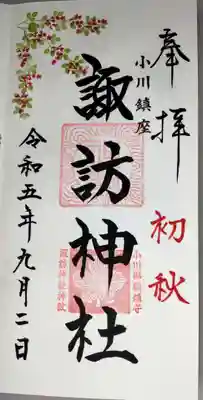 奉拝
初秋
小川鎮座
諏訪神社
令和五年九月二日